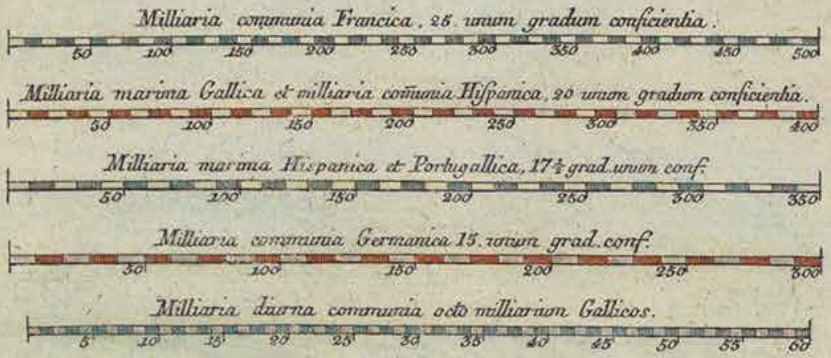 Milliaria communia Francica, 25. unum gradum conficientia.
50 100 150 200 250 300 350 400 450 500
Milliaria marima Gallica et milliaria com̄unia Hiſpanica, 20 unum gradum conficientia.
50 100 150 200 250 300 350 400
Milliaria marima Hispanica et Portugallica, 17½ grad. unum conf.
50 100 150 200 250 300 350
Milliaria communia Germanica 15. unum grad. conf.
50 100 150 200 250 300
Milliaria diurna communia octo milliarium Gallicos.
5 10 15 20 25 30 35 40 45 50 55 60